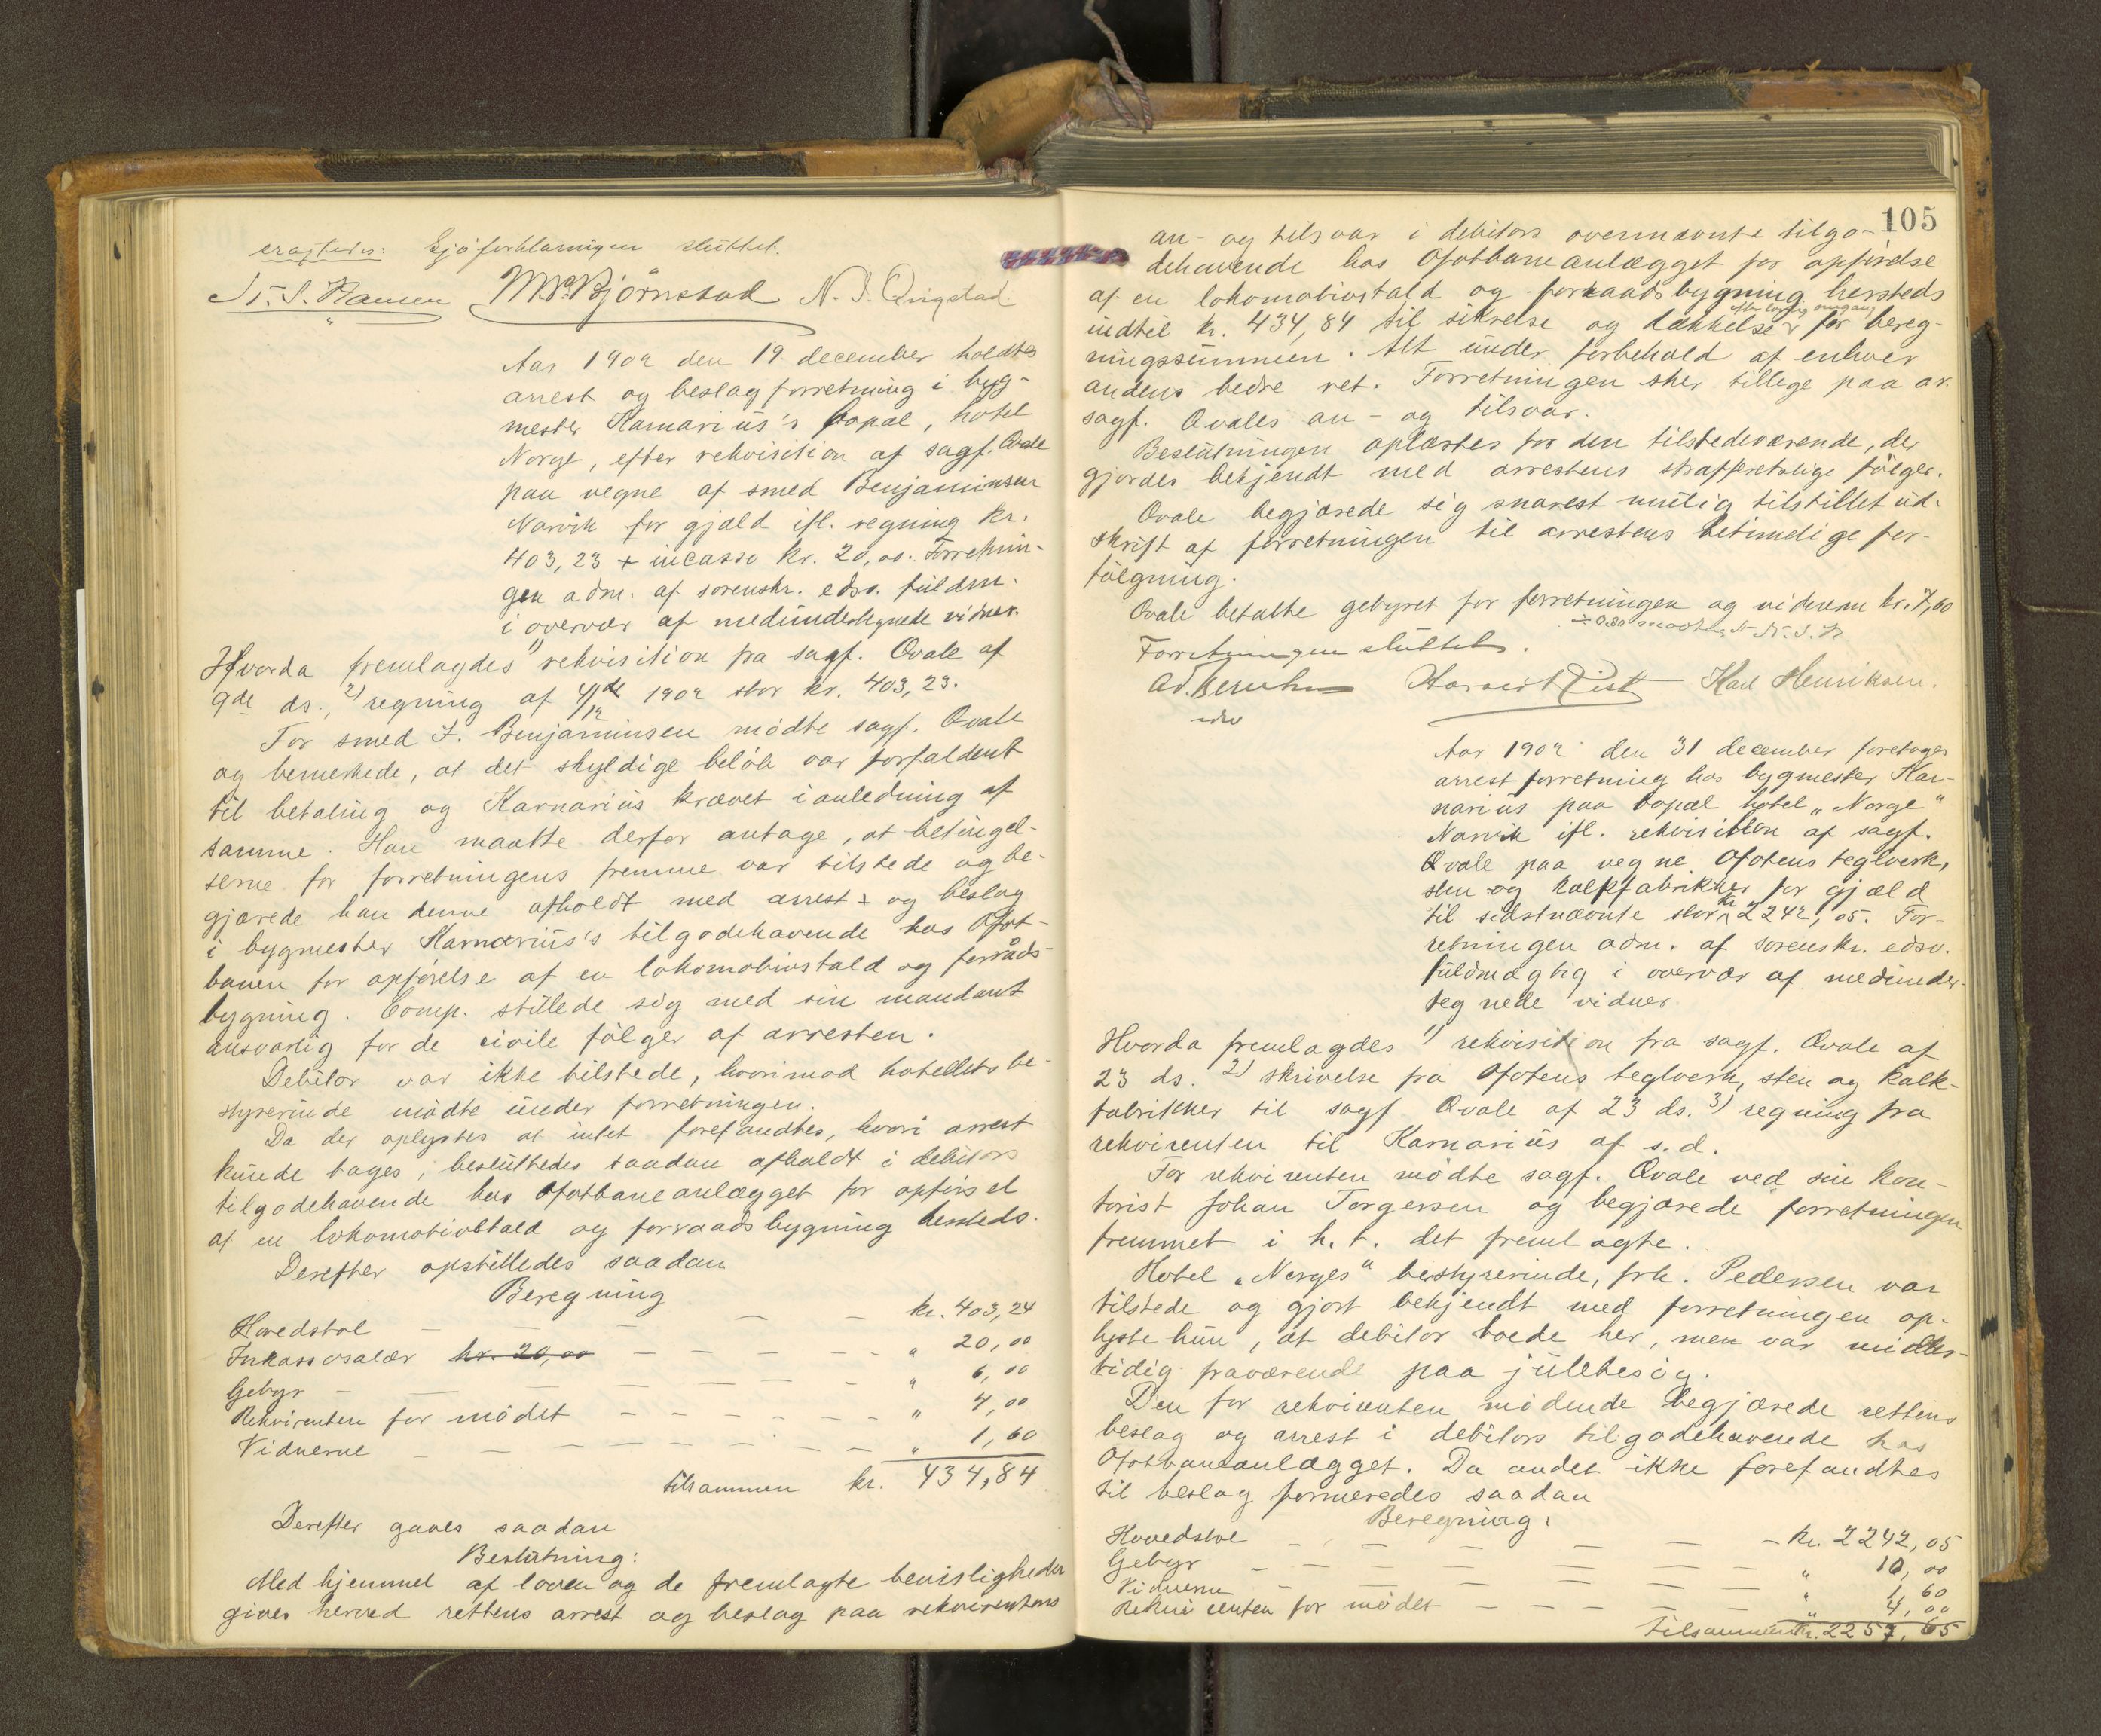 eragtedes: Sjøforklaringen sluttet.
N. S. Hansen M. Bjørnstad N. J. Qvigstad.
Aar 1902 den 19 december holdtes
arrest og beslagforretning i byg-
mester Karnarius's bopæl, hotel
Norge, efter rekvisition af sagf. Qvale
paa vegne af smed Benjaminsen
Narvik for gjæld ifl. regning kr.
403,23 + incasso kr. 20,00. Forretnin-
gen adm. af sorenskr. edsv. fuldm.
i overvær af medundertegnede vidner.
Hvorda fremlagdes 1) rekvisition fra sagf. Qvale af
9de ds., 2) regning af 4/12 de 1902 stor kr. 403,23.
For smed J. Benjaminsen mødte sagf. Qvale
og bemerkede, at det skyldige beløb var forfaldent
til betaling og Karnarius krævet i anledning af
samme. Han maatte derfor antage, at betingel-
serne for forretningens fremme var tilstede og be-
gjærede han denne afholdt med arrest + og beslag
i bygmester Karnarius's tilgodehavende hos Ofot-
banen for opførelse af en lokomotivstald og forråds-
bygning. Comp. stillede sig med sin mandant
ansvarlig for de civile følger af arresten.
Debitor var ikke tilstede, hvorimod hotellets be-
styrerinde mødte under forretningen.
Da der oplystes at intet forefandtes, hvori arrest
kunde tages, besluttedes saadan afholdt i debitors
tilgodehavende hos Ofotbaneanlægget for opførsel
af en lokomotivstald og forraadsbygning hersteds.
Derefter opstilledes saadan
Beregning
Hovedstol — — — — kr. 403,24
Inkassosalær kr. 20,00 — — — — " 20,00
Gebyr — — — — " 6,00
Rekvirenten for mødet — — — — " 4,00
Vidnerne — — — — " 1,60
tilsammen kr. 434,84
Derefter gaves saadan
Beslutning:
Med hjemmel af loven og de fremlagte bevisligheder
gives herved rettens arrest og beslag paa rekvirentens
105
an- og tilsvar i debitors ovennævnte tilgo-
dehavende hos Ofotbaneanlægget for opførelse
af en lokomotivstald og forraadsbygning hersteds
efter lovlig omgang
indtil kr. 434,84 til sikrelse og dækkelse for bereg-
ningssummen. Alt under forbehold af enhver
andens bedre ret. Forretningen sker tillige paa ov.
sagf. Qvales an- og tilsvar.
Beslutningen oplæstes for den tilstedeværende, der
gjordes bekjendt med arrestens strafferetslige følger.
Qvale begjærede sig snarest mulig tilstillet ud-
skrift af forretningen til arrestens betimelige for-
følgning.
Qvale betalte gebyret for forretningen og vidnerne kr. 7,60
Forretningen sluttet.
Karl Henriksen.
edsv
Aar 1902 den 31 december foretoges
arrestforretning hos bygmester Kar-
narius paa bopæl hotel „Norge"
Narvik ifl. rekvisition af sagf.
Qvale paa vegne Ofotens teglverk,
sten og kalkfabrikker for gjæld
til sidstnævnte stor kr 2242,05. For-
retningen adm. af sorenskr. edsv.
fuldmægtig i overvær af medunder-
tegnede vidner
Hvorda fremlagdes 1) rekvisition fra sagf. Qvale af
23 ds. 2) skrivelse fra Ofotens teglverk, sten og kalk-
fabrikker til sagf Qvale af 23 ds. 3) regning fra
rekvirenten til Karnarius af s.d.
For rekvirenten mødte sagf. Qvale ved sin kon-
torist Johan Torgersen og begjærede forretningen
fremmet i h. t. det fremlagte.
Hotel „Norges" bestyrerinde, frk. Pedersen var
tilstede og gjort bekjendt med forretningen op-
lyste hun, at debitor boede her, men var midler-
tidig fraværende paa julebesøg.
Den for rekvirenten mødende begjærede rettens
beslag og arrest i debitors tilgodehavende hos
Ofotbaneanlægget. Da andet ikke forefandtes
til beslag formeredes saadan
Beregning:
Hovedstol — — — — kr. 2242,05
Gebyr — — — — " 10,00
Vidnerne — — — — " 1,60
Rekvirenten for mødet — — — — " 4,00
tilsammen kr. 2257,65